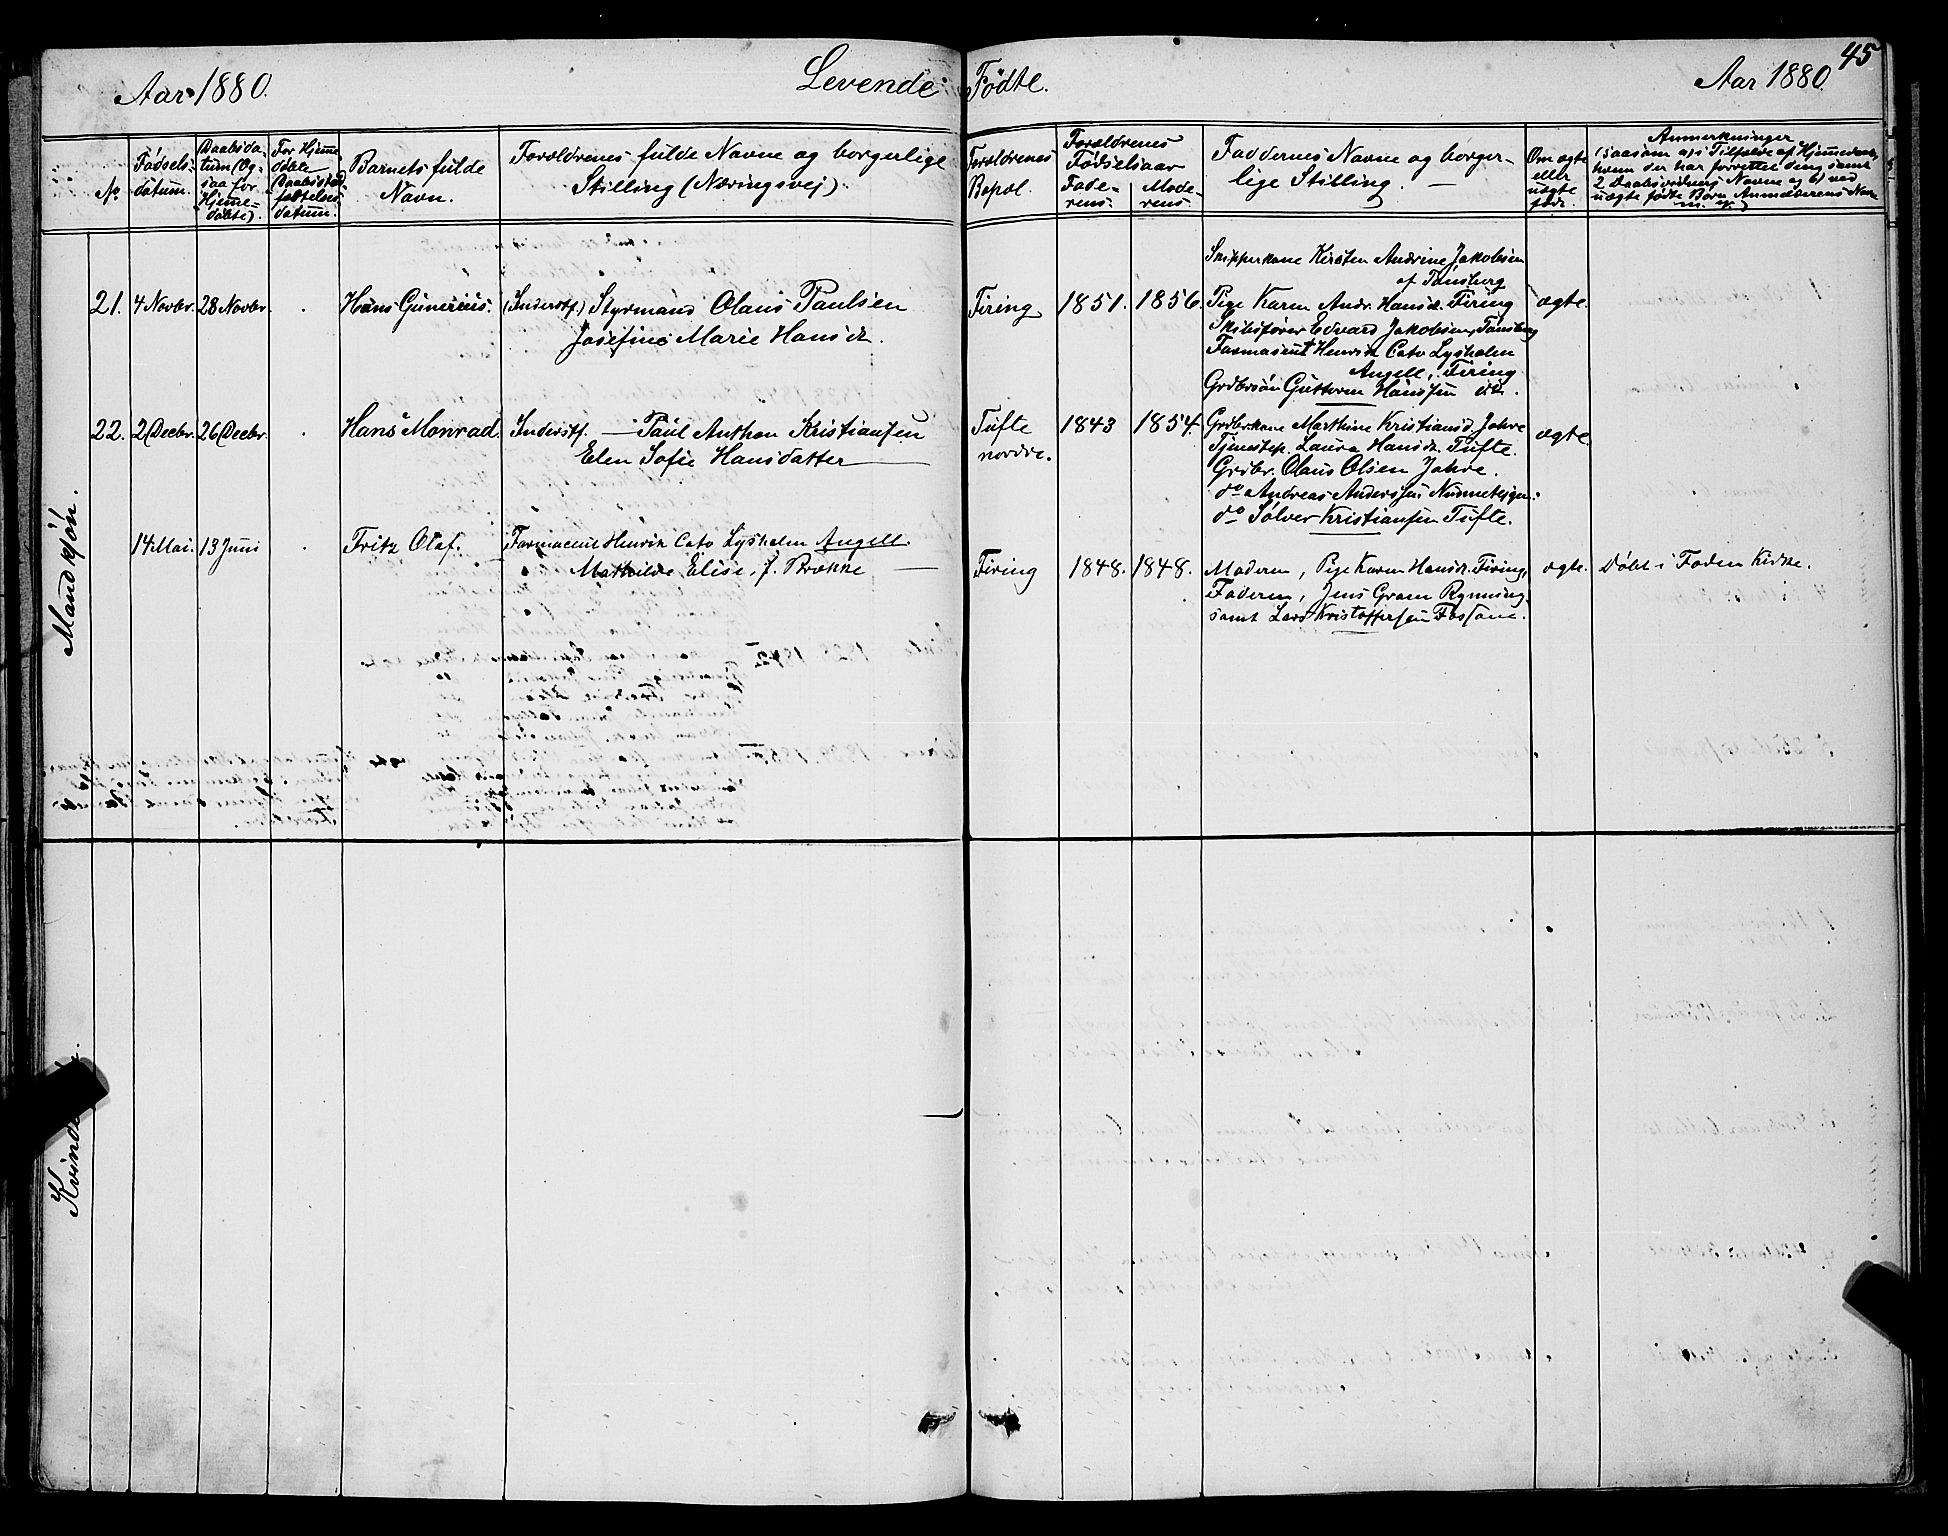 45
Aar 1880. Levende Fødte. Aar 1880.
No
Fødsels-
datum.
Daabsda-
tum (Og-
saa for
Hjemme-
døbte).
For Hjemme
døbte
Daabsstad-
fæstelses
datum.
Barnets fulde
Navn.
Forældrenes fulde Navne og borgerlige
Stilling (Næringsvej).
Forældrenes
Bopæl.
Forældrenes
Fødselsaar
Fade-
rens.
Mode-
rens.
Faddernes Navne og borger-
lige Stilling.
Om ægte
eller
uægte
født.
Anmerkninger
(saasom a) i Tilfælde af Hjemmedaab,
hvem der har forrettet den, samt
2 Daabsvidners Navne og b) ved
uægte fødte Børn Anmelderens Navn
Mandkjøn.
21. 4 Novbr. 28 Novbr. Hans Gunerius. (Inderstf.) Styrmand Olaus Paulsen
Josefine Marie Hansdr.
Firing 1851. 1856.
Skipperkone Kirsten Andrine Jakobsen
af Tønsberg
Pige Karen Andr. Hansdr. Firing
Skibsfører Edvard Jakobsen, Tønsberg
Farmaceut Henrik Cato Lysholm
Angell, Firing
Grdbrsøn Guttorm Hanssen ib.
ægte.
22. 2 Decbr. 26 Decbr. Hans Monrad. Inderstf. — Paul Anthon Kristiansen
Elen Sofie Hansdatter
Tufte
nordre.
1843 1854.
Grdbrkone Marthine Kristiansd. Jahre
Tjenestep. Laura Hansdr. Tufte.
Grdbr. Olaus Olsen Jahre.
do Andreas Anderssen
do Sølver Kristiansen Tufte.
ægte.
14 Mai. 13 Juni Fritz Olaf. Farmaceut Henrik Cato Lysholm Angell.
Mathilde Elise, f. Brække
Firing 1848. 1848.
Moderen, Pige Karen Hansdr. Firing,
Faderen, Jens Gram Rynning
samt Lars Kristoffersen Fossane.
ægte. Døbt i Foden Kirke.
Kvindekjøn.